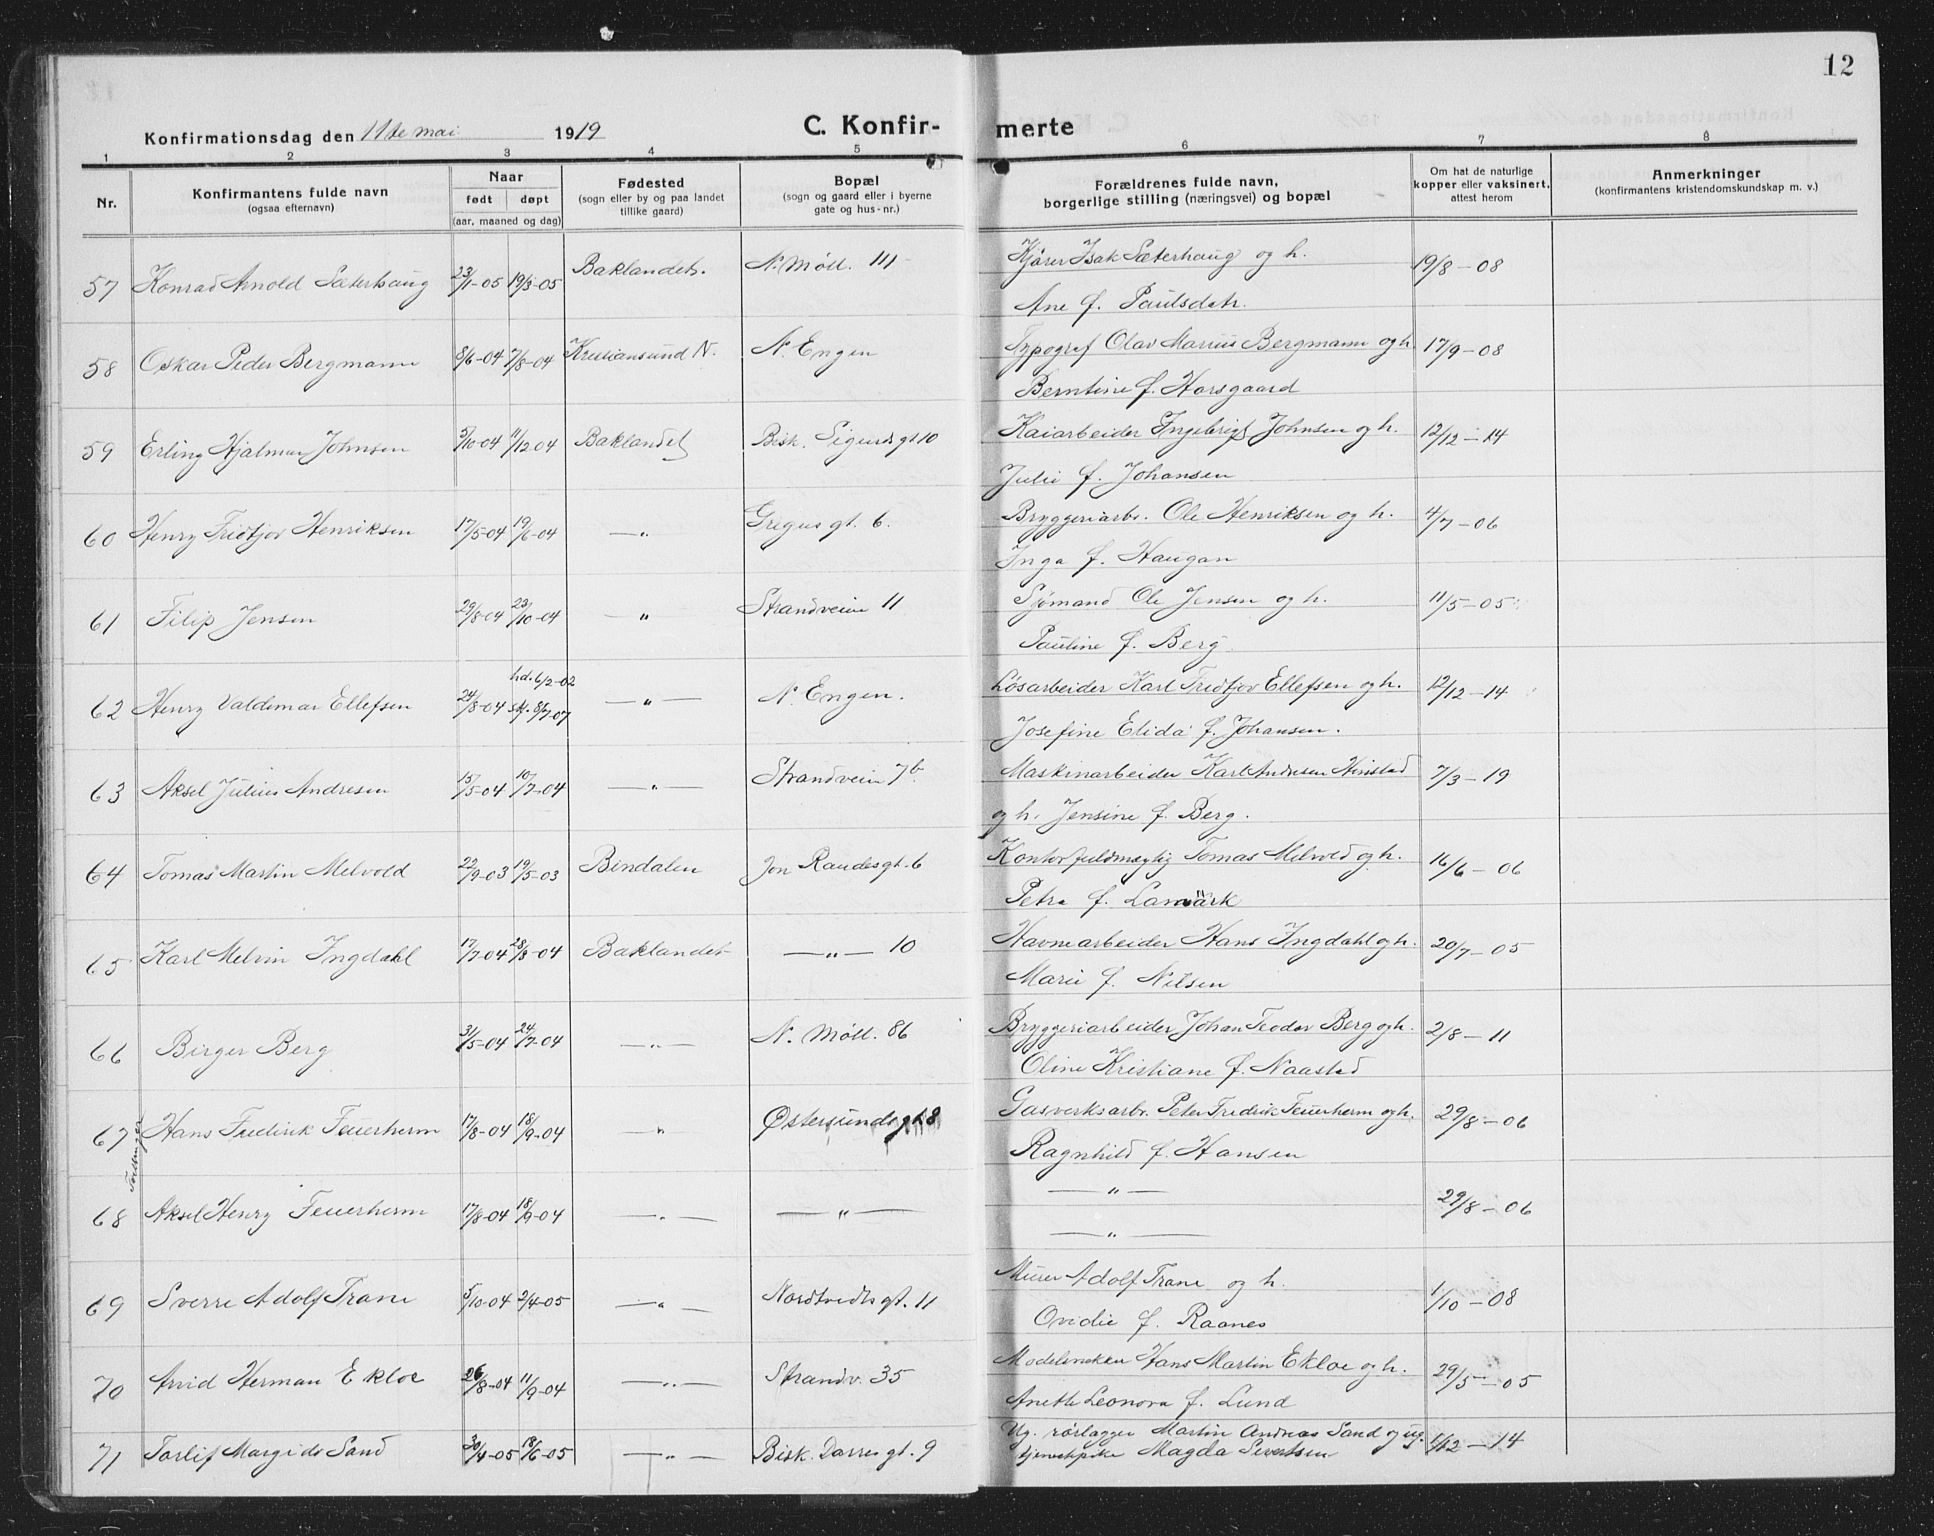 12
Konfirmationsdag den 11te mai 1919
C. Konfirmerte
1 2 3 4 5 6 7 8
Nr. Konfirmantens fulde navn (ogsaa efternavn) Naar født døpt (aar, maaned og dag) Fødested (sogn eller by og paa landet tillike gaard) Bopæl (sogn og gaard eller i byerne gate og hus-nr.) Forældrenes fulde navn, borgerlige stilling (næringsvei) og bopæl Om hat de naturlige kopper eller vaksinert, attest herom Anmerkninger (konfirmantens kristendomskundskap m. v.)
57 Konrad Arnold Sæterhaug 23/1-05 19/3-05 Baklandet. N. Möll. 111 Kjører Isak Sæterhaug og h. 19/8-08
Ane f. Paulsdatr.
58 Oskar Peder Bergmann 8/6-04 7/8-04 Kristiansund N. N. Engen Typograf Olav Marius Bergmann og h 17/9-08
Berntine f. Horsgaard
59 Erling Hjalmar Johnsen 5/10-04 11/12 04 Baklandet Bisk. Sigurds gt 10 Kaiarbeider Ingebrigt Johnsen og h. 12/12-14
Julie f. Johansen
60 Henry Fridtjov Henriksen 17/5-04 19/6-04 —"— Gregus gt. 6. Bryggeriarb. Ole Henriksen og h. 4/7-06
Inga f. Haugan
61 Filip Jensen 29/8-04 23/10-04 —"— Strandveien 11 Sjømand Ole Jensen og h. 11/5-05
Pauline f. Berg
hd. 6/2-02
62 Henry Valdemar Ellefsen 24/8-04 stf. 8/7-07 —"— N. Engen. Løsarbeider Karl Fridtjov Ellefsen og h. 12/12-14
Josefine Elida f. Johansen.
63 Aksel Julius Andresen 15/5-04 10/7-04 —"— Strandveien 7b Maskinarbeider Karl Andresen Hinstad 7/3-19
og h. Jensine f. Berg.
64 Tomas Martin Melvold 22/9-03 19/5-03 Bindalen Jon Raudes gt. 6 Kontorfuldmægtig Tomas Melvold og h. 16/6-06
Petra f. Lamark
65 Karl Melvin Ingdahl 17/7-04 28/8-04 Baklandet —"— 10 Havnearbeider Hans Ingdahl og h. 20/7-05
Marie f. Nilsen
66 Birger Berg 31/5-04 24/7-04 —"— N. Möll. 86 Bryggeriarbeider Johan Teodor Berg og h. 2/8-11
Oline Kristiane f. Naastad
67 Hans Fredrik Feuerherm 17/8-04 18/9-04 —"— Østersundsgt 8 Gasverksarb. Peter Fredrik Feuerherm og h. 29/8-06
Tvillinger
Ragnhild f. Hansen
68 Aksel Henry Feuerherm 17/8-04 18/9-04 —"— —"— —"— 29/8-06
—"—
69 Sverre Adolf Trane 5/10-04 2/4-05 —"— Nordtvedts gt. 11 Murer Adolf Trane og h. 1/10-08
Ovidie f. Raanes
70 Arvid Herman Ekloe 26/8-04 11/9-04 —"— Strandv. 35 Modelsnekker Hans Martin Ekloe og h. 29/5-05
Anette Leonora f. Lund
71 Torlif Margido Sand 30/4-05 18/6-05 —"— Bisk. Darres gt. 9 Ug. rörlægger Martin Andreas Sand og ug. 1/12-14
tjenestepike Magda Sivertsen